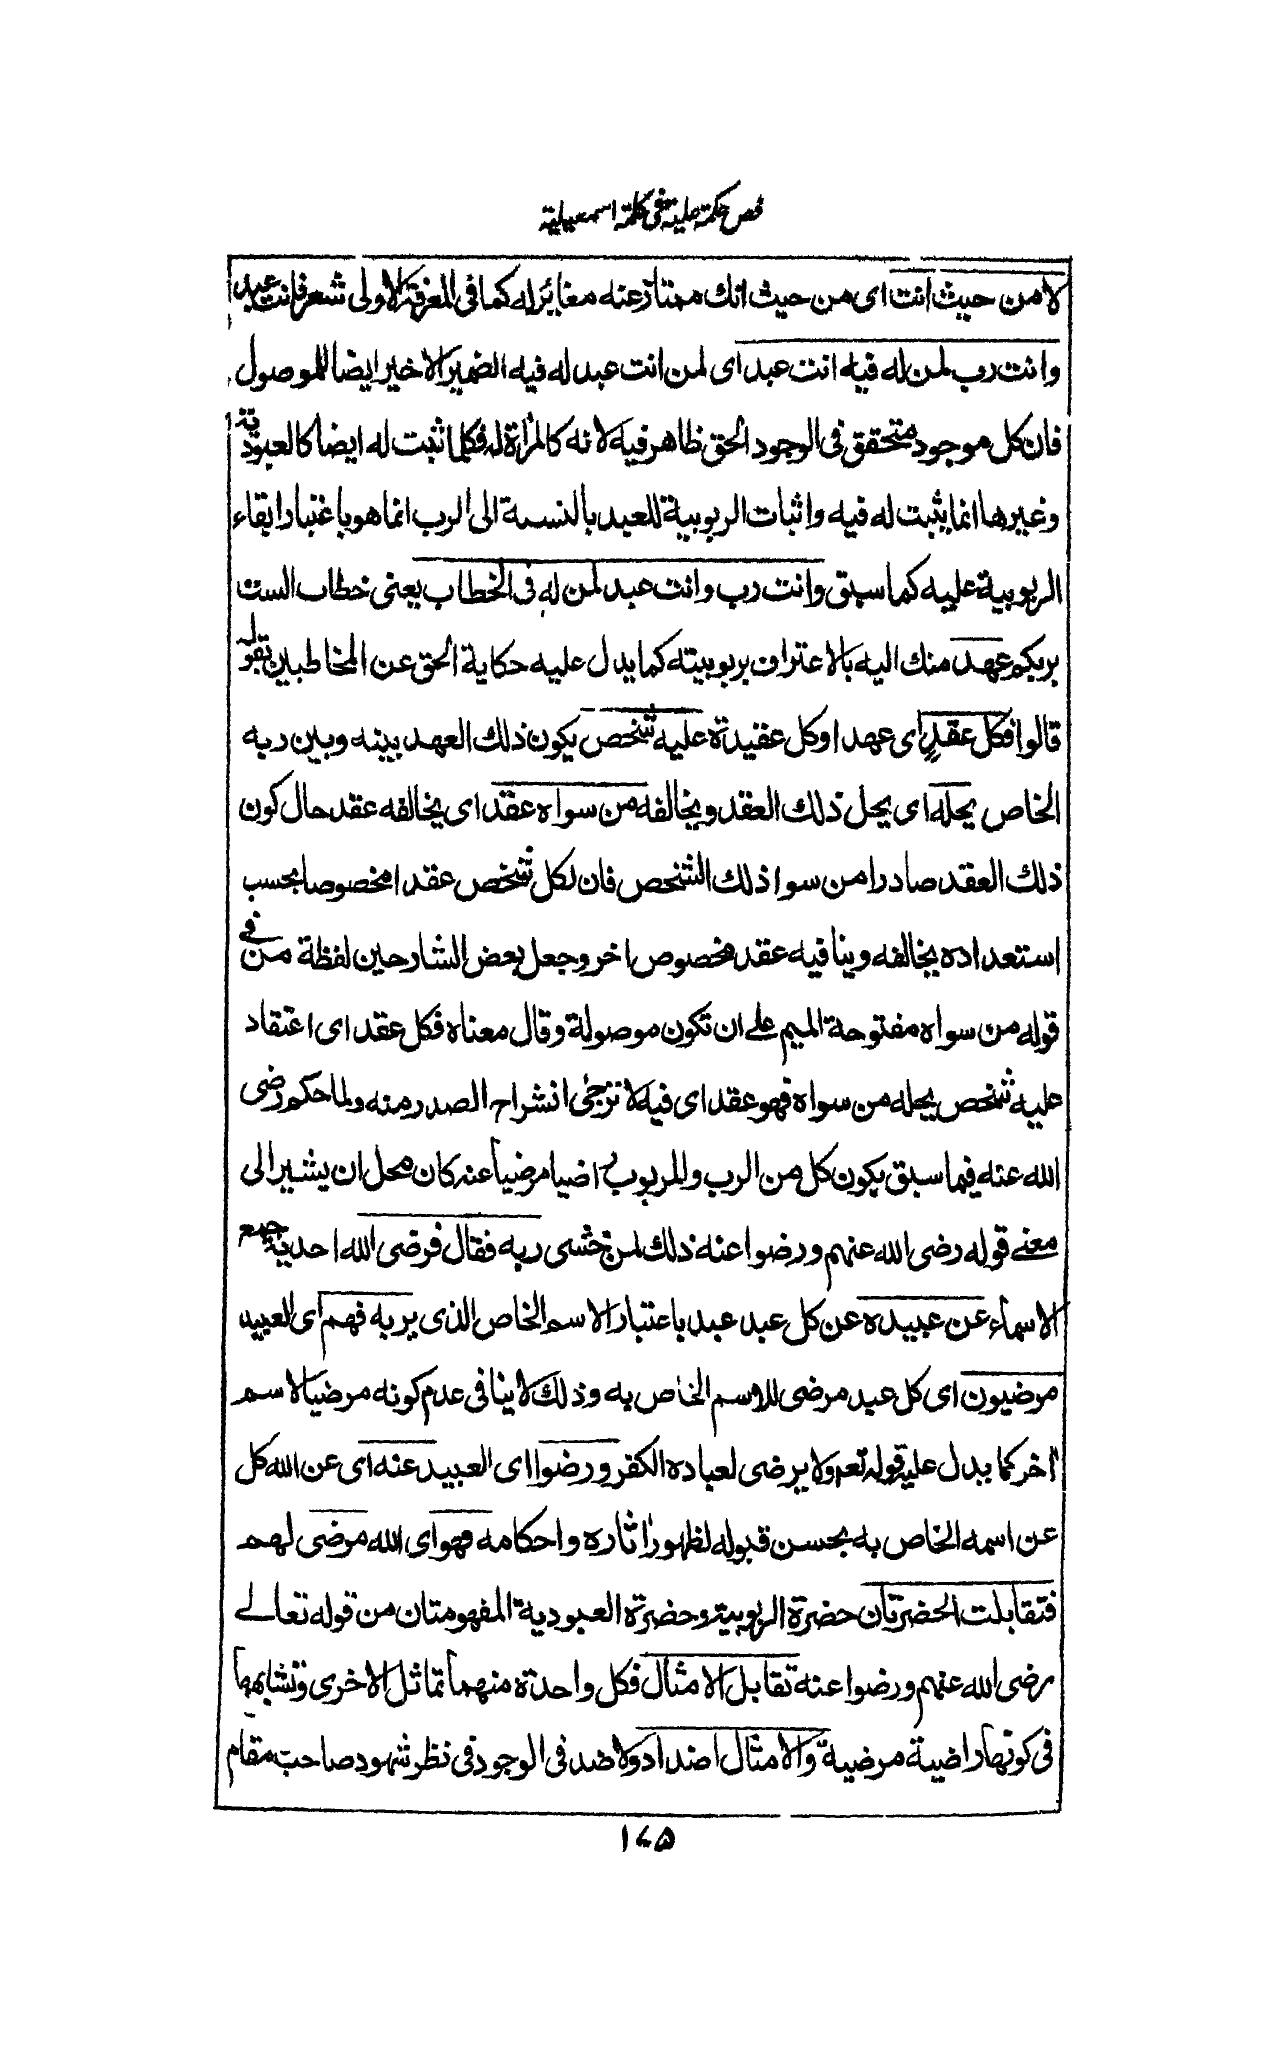 فص حكمة علية فى كلمة اسمعيلية
لا من حيث انت اى من حيث انك ممتاز عنه مغاير له كما فى المعرفة الاولى شعر فانت عبد
وانت رب لمن له فيه انت عبد اى لمن انت عبد له فيه الضمير الاخير ايضا للموصول
فان كل موجود متحقق فى الوجود الحق ظاهر فيه لانه كالمرأة له فكلما ثبت له ايضا كالعبودية
وغيرها انما يثبت له فيه واثبات الربوبية للعبد بالنسبة الى الرب انما هو باعتبار ابقاء
الربوبية عليه كما سبق وانت رب وانت عبد لمن له فى الخطاب يعنى خطاب الست
بربكم عهد منك اليه بالاعتراف بربوبيته كما يدل عليه حكاية الحق عن المخاطبين بقوله
قالوا فكل عقد اى عهد او كل عقيدة عليه شخص يكون ذلك العهد بينه وبين ربه
الخاص يحله اى يحل ذلك العقد ويخالفه من سواه عقد اى يخالفه عقد حال كون
ذلك العقد صادرا من سوا ذلك الشخص فان لكل شخص عقدا مخصوصا بحسب
استعداده يخالفه وينافيه عقد مخصوص اخر وجعل بعض الشارحين لفظة من فى
قوله من سواه مفتوحة الميم على ان تكون موصولة وقال معناه فكل عقد اى اعتقاد
عليه شخص يحله من سواه فهو عقد اى فيه لا نرجئ انشراح الصدر منه ولما حكم رضى
الله عنه فيما سبق بكون كل من الرب والمربوب راضيا مرضيا عنه كان محل ان يشير الى
معنى قوله رضى الله عنهم ورضوا عنه ذلك لمن خشى ربه فقال فرضى الله احدية جمع
الاسماء عن عبيده عن كل عبد عبد باعتبار الاسم الخاص الذى يربه فهم اى العبيد
مرضيون اى كل عبد مرضى للاسم الخاص به وذلك لا ينافى عدم كونه مرضيا لاسم
آخر كما يدل عليه قوله تعه ولا يرضى لعباده الكفر ورضوا اى العبيد عنه اى عن الله كل
عن اسمه الخاص به بحسن قبوله لظهور اثاره واحكامه فهو اى الله مرضى لهم
فتقابلت الحضرتان حضرة الربوبية وحضرة العبودية المفهومتان من قوله تعالى
رضى الله عنهم ورضوا عنه تقابل الامثال فكل واحدة منهما تماثل الاخرى وتشابهها
فى كونها راضية مرضية والامثال اضداد ولا ضد فى الوجود فى نظر شهود صاحب مقام
۱۷۵